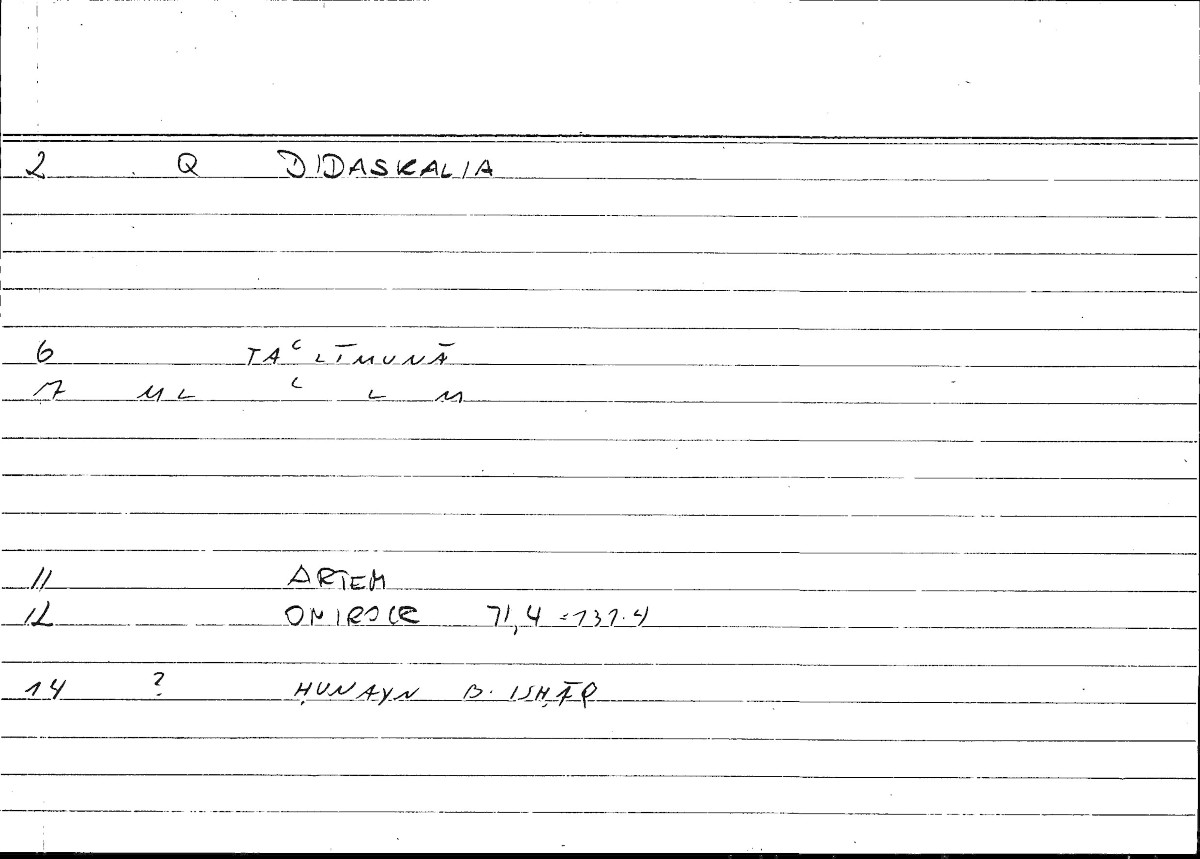 2 Q DIDASKALIA
6 TAʿLĪMUNĀ
7 ML ʿ L M
11 ARTEM
12 ONIROCR 71,4 = 131.4
14 ? ḤUNAYN B. ISḤĀQ